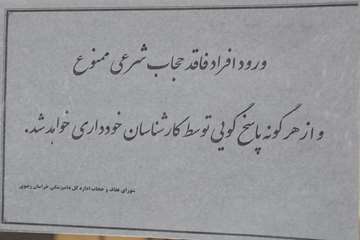 ورود افراد فاقد حجاب شرعی ممنوع
و از هر گونه پاسخ گویی توسط کارشناسان خودداری خواهد شد.
شورای عفاف و حجاب اداره کل دامپزشکی خراسان رضوی